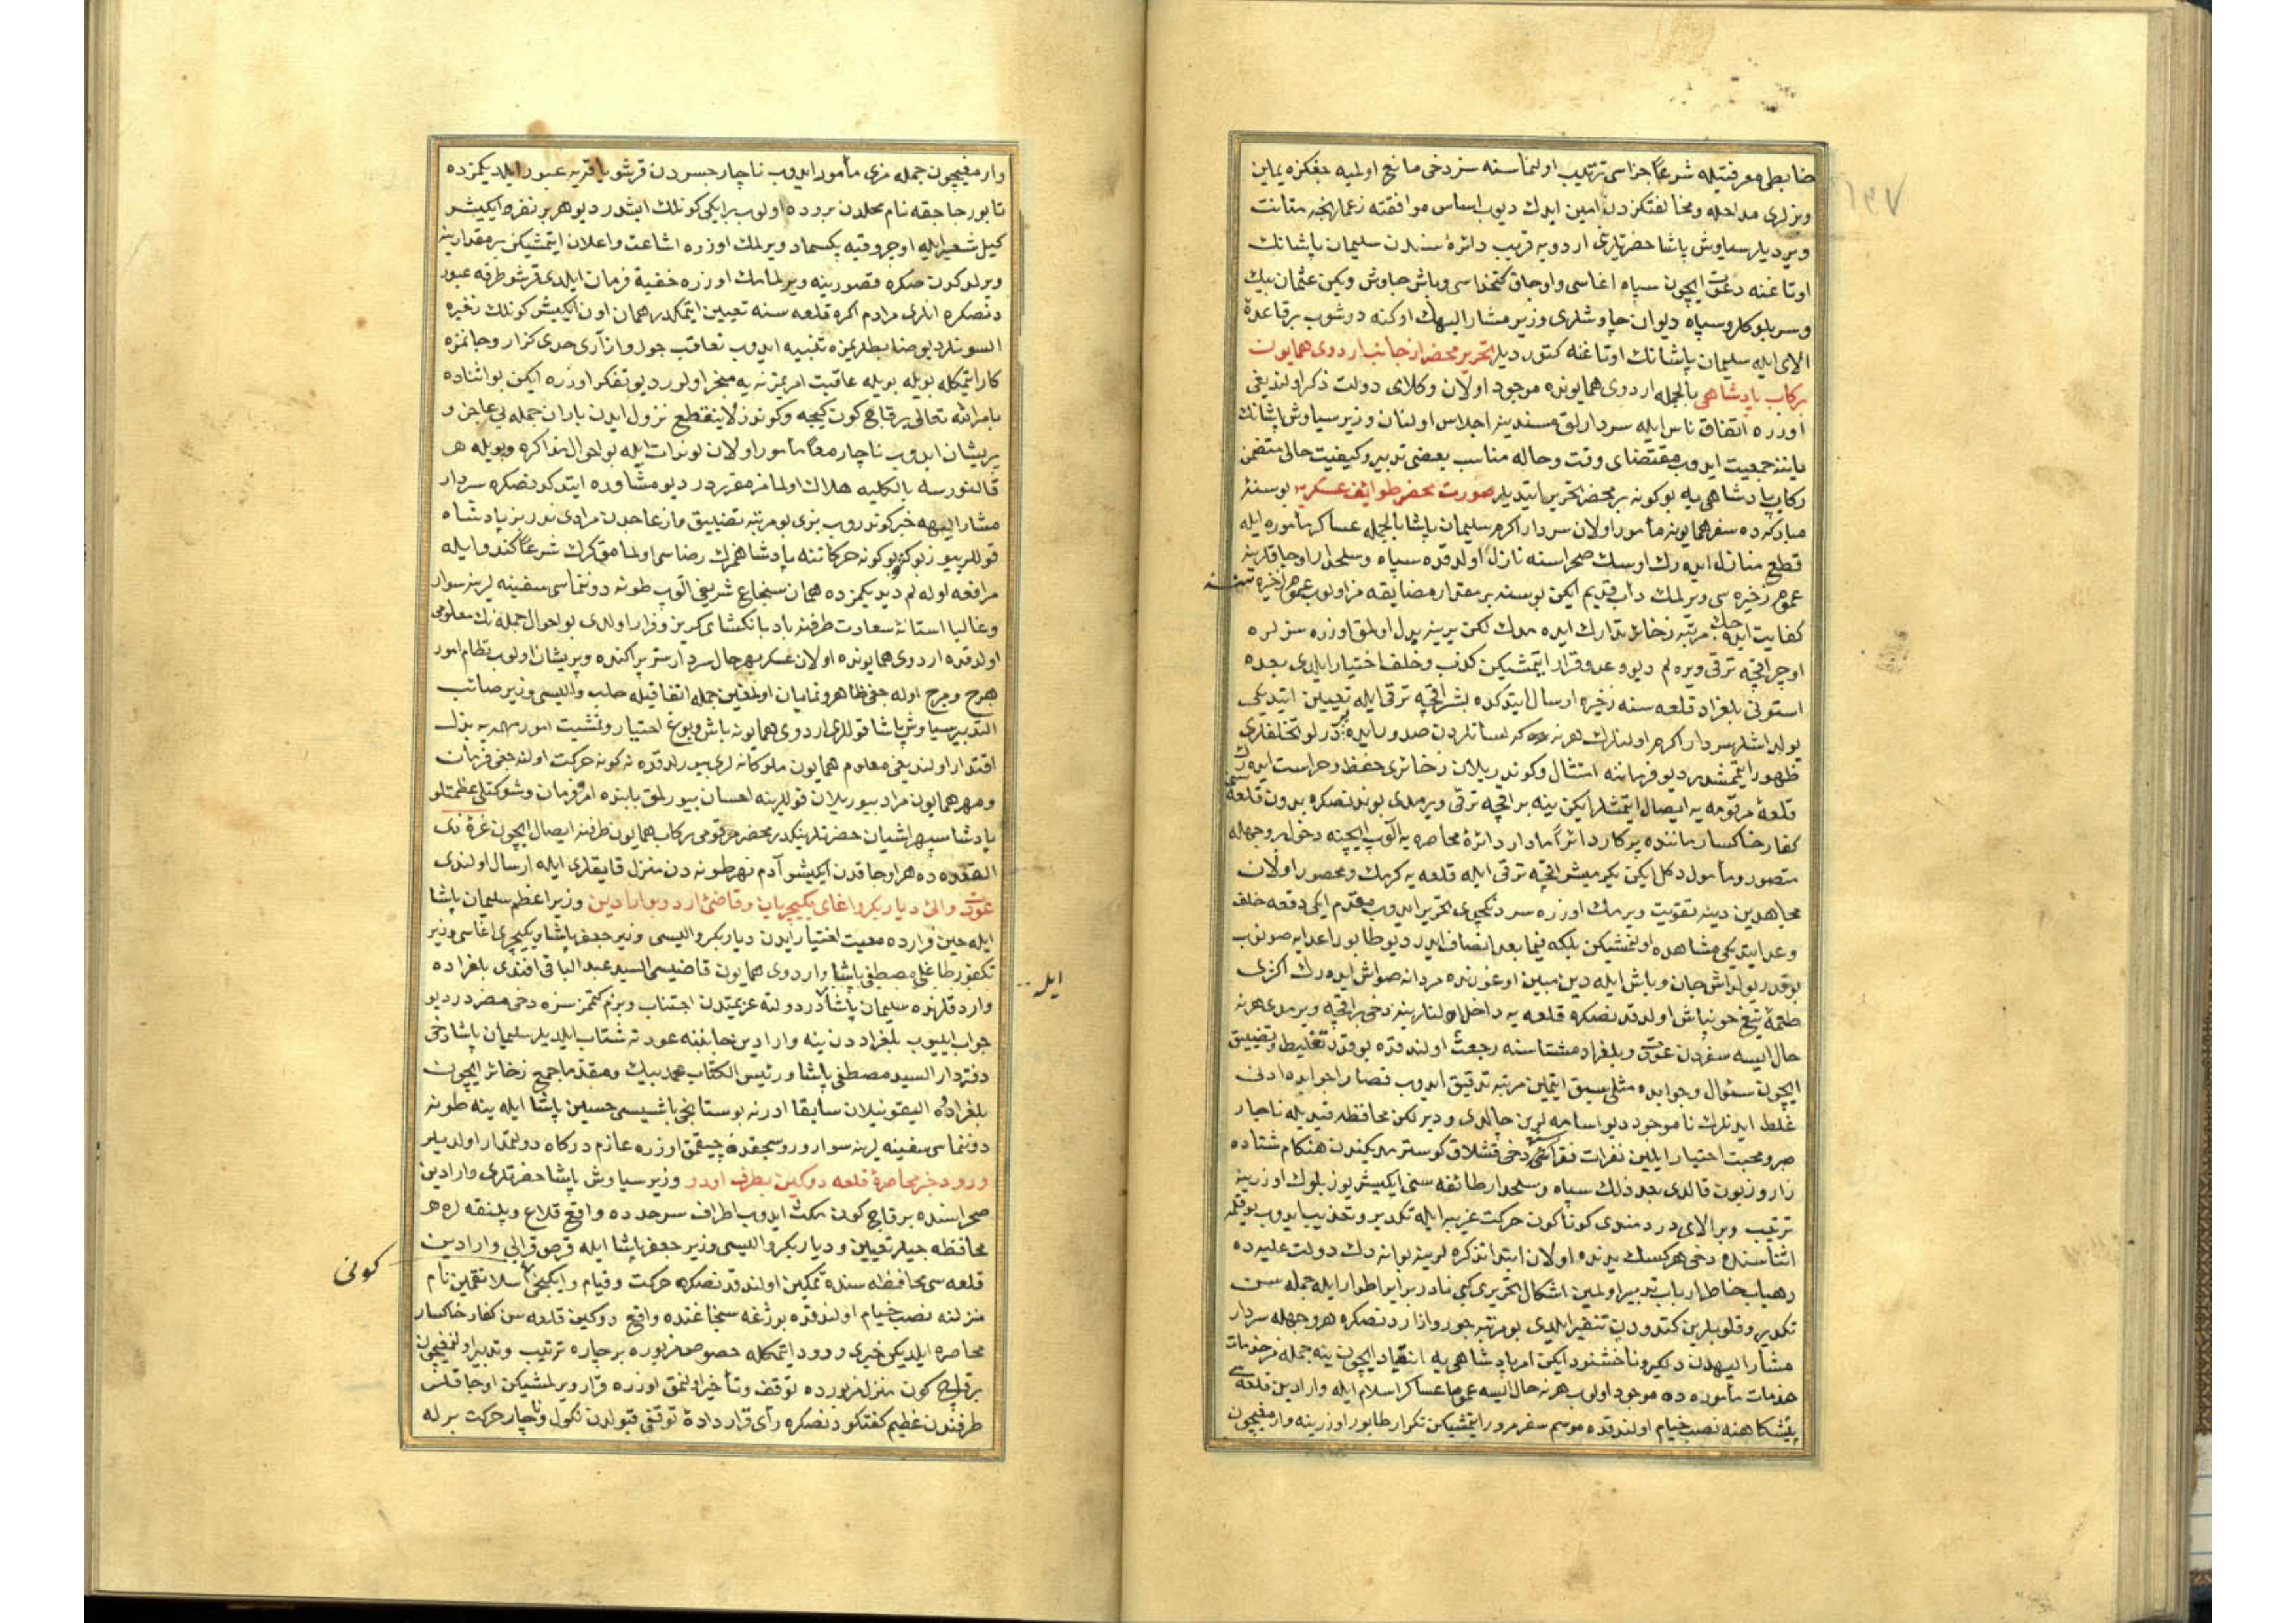 ضابطی معرفتیله شرعاً جزاسی ترتیب اولنماسنه سز دخی مانع اولمیه جغکزه یمین
ویزلری مداخله ومخالفتکزدن امین ایدك دیوب اساس موافقته زعملرنجه متانت
ویردیلر سیاوش پاشا حضرتلری اردویه قریب دائرهٔ سندن سلیمان پاشانك
اوتاغنه دعوت ایچون سپاه اغاسی واوجاق کتخداسی وباش چاوش ویکن عثمان بیك
وسر بلوکلر وسپاه دیوان چاوشلری وزیر مشار الیهك اوکنه دوشوب بر قاعدهٔ
الای ایله سلیمان پاشانك اوتاغنه کتوردیلر تحریر محضر از جانب اردوی همایون
برکاب پادشاهی بالجمله اردوی همایونده موجود اولان وکلای دولت ذکر اولندیغی
اوزره اتفاق ناس ایله سردارلق مسندینه اجلاس اولنان وزیر سیاوش پاشانك
یاننه جمعیت ایدوب مقتضای وقت وحاله مناسب بعضی تدبیر وکیفیت حالی متضمن
رکاب پادشاهی یه بو کونه بر محضر تحریر ایتدیلر صورت محضر طوائف عسکریه بو سنهٔ
مبارکه ده سفر همایونه مأمور اولان سردار اکرم سلیمان پاشا بالجمله عساکر مأموره ایله
قطع منازل ایدرك اوسك صحراسنه نازل اولدقده سپاه وسلحدار اوجاقلرینه
عموم ذخیره سی ویرلمك دأب قدیم ایکن بو سنه بر مقدار مضایقه مز اولوب عموم ذخیره سنه
کفایت ایده جك مرتبه ذخائر تدارك ایده مدك لکن یرینه بدل اولمق اوزره سزلره
اوچر اقچه ترقی ویره لم دیو وعد وقرار ایتمشیکن کذب وخلف اختیار ایلدی بعده
استونی بلغراد قلعه سنه ذخیره ارسال ایتدکده بشر اقچه ترقی ایله تعیین ایتدیکی
یولداشلر سردار اکرم اولنلرك هر نه که لسانلرندن صدور ایده
ظهور ایتمشدر دیو فرماننه امتثال وکوندریلان ذخائری حفظ وحراست ایدرك
قلعهٔ مرقومه یه ایصال ایتمشلر ایکن ینه بر اقچه ترقی ویرمدی بوندنصکره بدون قلعه سنی
کفار خاکسار ماننده پرکار دائراً مادار دائرهٔ محاصره یه الوب ایچنه دخول بر وجهله
متصور ومأمول دکل ایکن یکرمیشر اقچه ترقی ایله قلعه یه کرمك ومحصور اولان
مجاهدین دینه تقویت ویرمك اوزره سردنکچدی تحریر ایدوب مقدم ایکی دفعه خلف
وعد ایتدیکی مشاهده اولنمشیکن بلکه فیما بعد انصاف ایدر دیو طابور اعدایه صونوب
بو قدر یولداش جان وباش ایله دین مبین اوغورنده مردانه صواش ایدرك اکثری
طعمهٔ تیغ خونپاش اولدقدنصکره قلعه یه داخل اولنلرینه دخی بر اقچه ویرمدی هر نه
حال ایسه سفردن عودت وبلغراد مشتاسنه رجعت اولندقده بو قدر تغلیط وتضییق
ایچون سئوال وجوابده مثلی سبق ایتمین مرتبه تدقیق ایدوب قصار اجوابده ادنی
غلط ایدنلرك ناموجود دیو اسامه لرین چالدی ودیر لکن محافظه قیدیله ناچار
صر ومحبت اختیار ایلین نفرات فقراسنه دخی قشلاق کوسترمدیکندن هنکام شتاده
زار وزبون قالدی بعد ذلك سپاه وسلحدار طائفه سنی ایکیشر یوز بلوك اوزرینه
ترتیب وبر الای دردمندی کوناکون حرکت غریبه ایله تکدیر وتعذیب ایدوب بو قیله
اثناسنده دخی هر کسك یدنده اولان ابتدا تذکره لرینه بوانه دك دولت علیه ده
رهیاب خاطر ارباب تدبیر اولمین اشکال تحریری کبی نادر برابر اطوار ایله جمله سن
تکدیر وقلوبلرین کندودن تنفیر ایلدی بو مرتبه جور وازاردنصکره هر وجهله سردار
مشار الیهدن دلکیر وناخشنود ایکن امر پادشاهی یه انقیاد ایچون ینه جمله مز خدمات
خدمات مأموره ده موجود اولوب هر نه حال ایسه عموما عساکر اسلام ایله وارادین قلعه سی
پیشکاهنه نصب خیام اولندقده موسم سفر مرور ایتمشیکن تکرار طابور اوزرینه وارمغیچون
وارمغیچون جمله مزی مأمور ایدوب ناچار جسردن قرشو یاقه یه عبور ایلدیکمزده
تابور جاجقه نام محلدن بروده اولوب بر ایکی کونلك ایشدر دیو هر بر نفره ایکیشر
کیل شعیر ایله اوچر وقیه پکسماد ویرلمك اوزره اشاعت واعلان ایتمشیکن بر مقدارینه
ویرلوکون صکره قصورینه ویرلمامك اوزره خفیة فرمان ایلدی قرشو طرفه عبور
دنصکره انلری مرادم اکره قلعه سنه تعیین ایتمکدر همان اون ایکیشر کونلك ذخیره
السونلر دیو ضابطلریمزه تنبیه ایدوب تعاقب جور وازآری حدی کزار وجانمزه
کار ایتمکله بویله بویله عاقبت امریمز نه یه منجر اولور دیو تفکر اوزره ایکن بو اثناده
بامر الله تعالی بر قاچ کون کیجه وکوندز لاینقطع نزول ایدن باران جمله یی عاجز و
پریشان ایدوب ناچار معاً مأمور اولان لوندات ایله بو احوال مذاکره وبویله هر
قالنورسه بالکلیه هلاك اولمامز مقرردر دیو مشاوره ایتدکدنصکره سردار
مشار الیهه خبر کوندروب بزی بو مرتبه تضییق وازعاجدن مرادی ندر بز پادشاه
قوللرییوز بو کونه حرکاتنه پادشاهمزك رضاسی اولمامق کرك شرعاً کندو ایله
مرافعه اوله لم دیدیکمزده همان سنجاغ شریفی الوب طونه دونماسی سفینه لرینه سوار
وغالبا استانهٔ سعادت طرفنه بادبانکشای کریز وفرار اولدی بو احوال جمله نك معلومی
اولدقده اردوی همایونده اولان عسکر بهر حال سردارسز پراکنده وپریشان اولوب نظام امور
هرج ومرج اوله جغی ظاهر ونمایان اولمغین جمله اتفاقیله حلب والیسی وزیر صائب
التدبیر سیاوش پاشا قوللری اردوی همایونه باش وبوغ اختیار وتمشیت امور مهمه یه بذل
اقتدار اولندیغی معلوم همایون ملوکانه لری بیورلدقده نه کونه حرکت اولنه جغی فرمان
ومهر همایون مراد بیوریلان قوللرینه احسان بیورلمق بابنده امر وفرمان وشوکتلی عظمتلو
پادشاه سپهر اشیان حضرتلرینکدر محضر مرقومی رکاب همایون طرفنه ایصال ایچون غرهٔ ذی
القعده ده هر اوجاقدن ایکیشر آدم نهر طونه دن منزل قایقلری ایله ارسال اولندی
عودت والئ دیاربکر واغای یکیچریان وقاضئ اردو بوارادین وزیر اعظم سلیمان پاشا
ایله حین فرارده معیت اختیار ایدن دیاربکر والیسی وزیر جعفر پاشا ویکیچری اغاسی وزیر
تکفورطاغلی مصطفی پاشا واردوی همایون قاضیسی السید عبد الباقی افندی بلغراده
ایله
واردقلرنده سلیمان پاشا در دولته عزیمتدن اجتناب وبزم کتمکز سزه دخی مضردر دیو
جواب ایلیوب بلغراددن ینه وارادین جانبنه عودته شتاب ایلدیلر سلیمان پاشا دخی
دفتردار السید مصطفی پاشا ورئیس الکتاب محمد بیك ومقدما جمع ذخائر ایچون
بلغراده الیقونیلان سابقا ادرنه بوستانجی باشیسی حسین پاشا ایله ینه طونه
دونماسی سفینه لرینه سوار وروسجقده چیقمق اوزره عازم درکاه دولتمدار اولدیلر
ورود خبر محاصرهٔ قلعه دوکین بطرف اردو وزیر سیاوش پاشا حضرتلری وارادین
صحراسنده بر قاچ کون مکث ایدوب اطراف سرحدده واقع قلاع وپلنقه لره هر
محافظه جیلر تعیین ودیاربکر والیسی وزیر جعفر پاشا ایله قرص قرالی وارادین
کونی
قلعه سی محافظه سنده تمکین اولندقدنصکره حرکت وقیام وایکنجی اسلانقمین نام
منزلنه نصب خیام اولندقده بوژغه سنجاغنده واقع دوکین قلعه سن کفار خاکسار
محاصره ایلدیکی خبری ورود ایتمکله خصوص مزبوره بر چاره ترتیب وتدبیر اولنمغیچون
بر قاچ کون منزل مزبورده توقف وتأخیر اولنمق اوزره قرار ویرلمشیکن اوجاقلر
طرفندن عظیم کفتکودنصکره رأی قرار دادهٔ توقفی قبولدن نکول وناچار حرکت برله